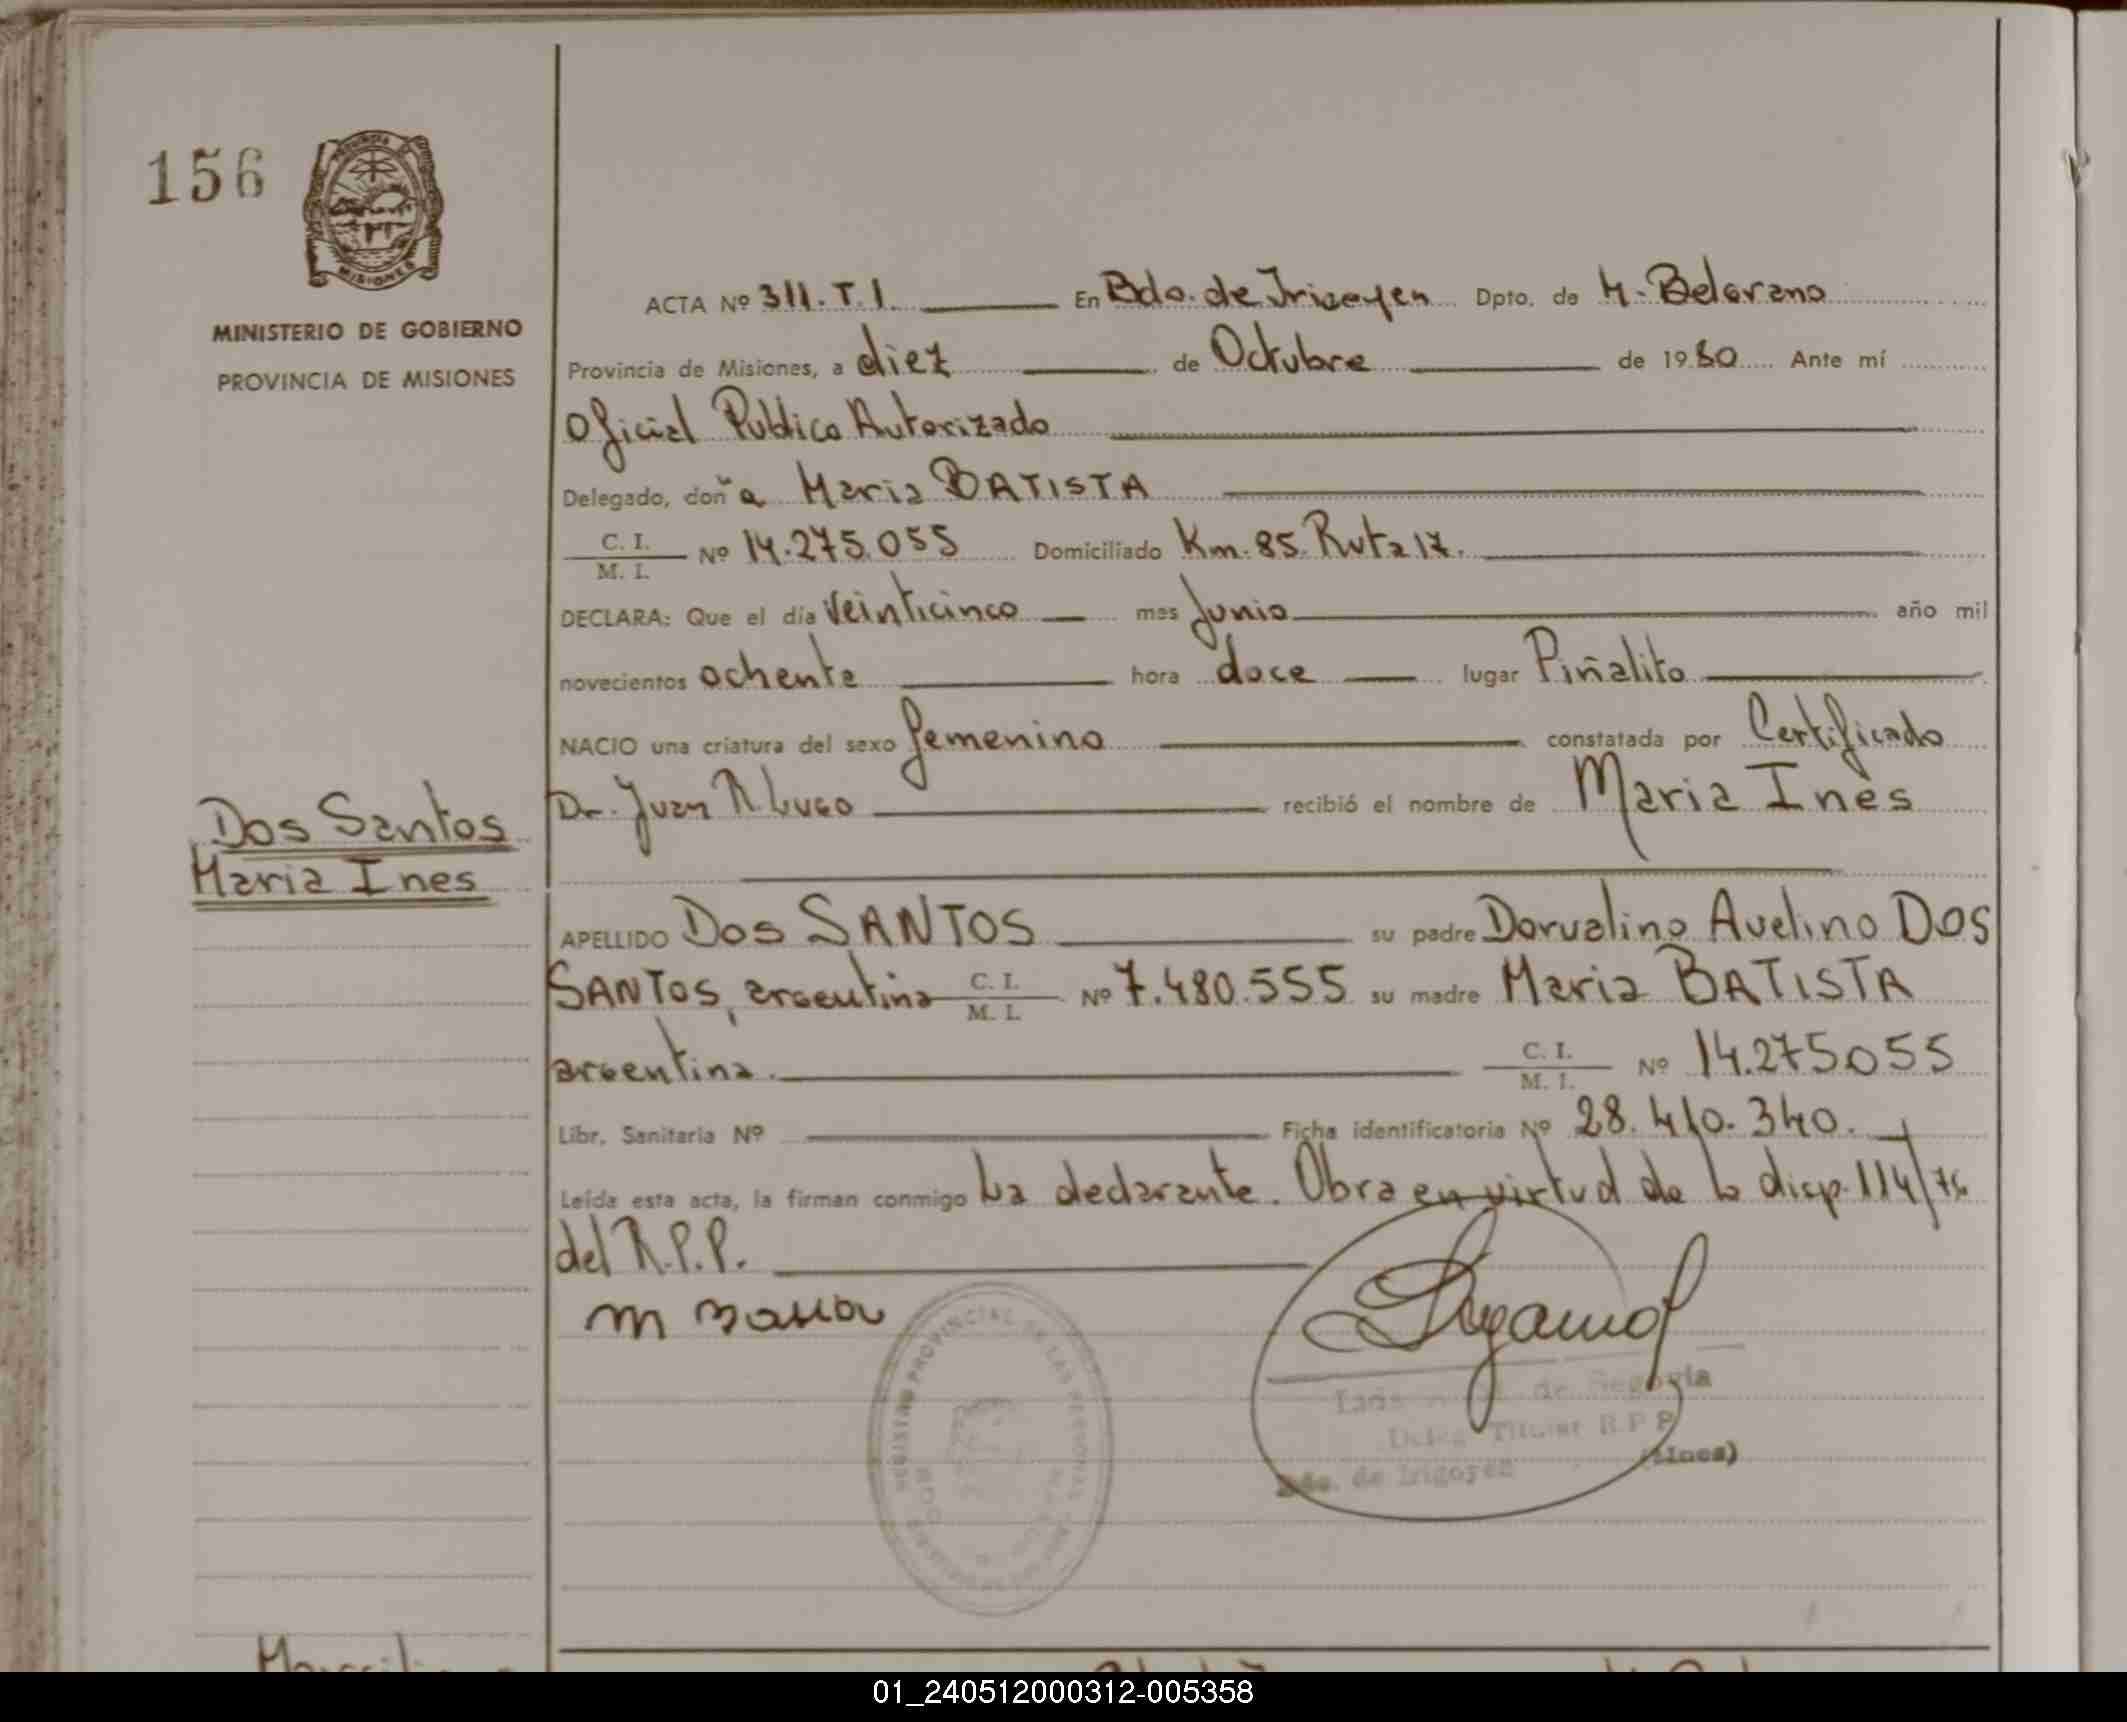 156
PROVINCIA DE
MISIONES
MINISTERIO DE GOBIERNO
PROVINCIA DE MISIONES
ACTA Nº 311. T. I. En Bdo. de Irigoyen Dpto. de M. Belgrano
Provincia de Misiones, a diez de Octubre de 1980 Ante mí
Oficial Publico Autorizado
Delegado, doña Maria BATISTA
C. I. / M. I. Nº 14.275.055 Domiciliado Km. 85. Ruta 17.
DECLARA: Que el día veinticinco mes Junio año mil
novecientos ochenta hora doce lugar Piñalito
NACIO una criatura del sexo femenino constatada por Certificado
Dr. Juan R. Lugo recibió el nombre de Maria Ines
Dos Santos
Maria Ines
APELLIDO DOS SANTOS su padre Dorvalino Avelino DOS
SANTOS, argentino C. I. / M. I. Nº 7.480.555 su madre Maria BATISTA
argentina. C. I. / M. I. Nº 14.275055
Libr. Sanitaria Nº Ficha identificatoria Nº 28.410.340.
Leída esta acta, la firman conmigo La declarante. Obra en virtud de la disp. 114/76
del R.P.P.
REGISTRO PROVINCIAL DE LAS PERSONAS
de Segovia
Titular R.P.P.
Bdo. de Irigoyen (Mnes)
01_240512000312-005358